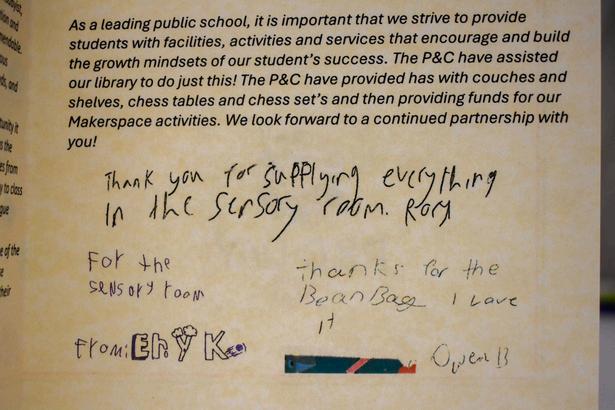 As a leading public school, it is important that we strive to provide
students with facilities, activities and services that encourage and build
the growth mindsets of our student's success. The P&C have assisted
our library to do just this! The P&C have provided has with couches and
shelves, chess tables and chess set's and then providing funds for our
Makerspace activities. We look forward to a continued partnership with
you!
Thank you for supplying everything
In the Sensory room. Rory
For the
sensory room
From: Ehy K
thanks for the
Bean Bag I Love
it
Owen B